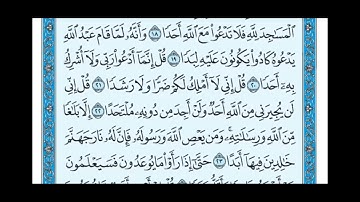 ٱلْمَسَٰجِدَ لِلَّهِ فَلَا تَدْعُوا۟ مَعَ ٱللَّهِ أَحَدًا ١٨ وَأَنَّهُۥ لَمَّا قَامَ عَبْدُ ٱللَّهِ
يَدْعُوهُ كَادُوا۟ يَكُونُونَ عَلَيْهِ لِبَدًا ١٩ قُلْ إِنَّمَآ أَدْعُوا۟ رَبِّى وَلَآ أُشْرِكُ
بِهِۦٓ أَحَدًا ٢٠ قُلْ إِنِّى لَآ أَمْلِكُ لَكُمْ ضَرًّا وَلَا رَشَدًا ٢١ قُلْ إِنِّى
لَن يُجِيرَنِى مِنَ ٱللَّهِ أَحَدٌ وَلَنْ أَجِدَ مِن دُونِهِۦ مُلْتَحَدًا ٢٢ إِلَّا بَلَٰغًا
مِّنَ ٱللَّهِ وَرِسَٰلَٰتِهِۦ وَمَن يَعْصِ ٱللَّهَ وَرَسُولَهُۥ فَإِنَّ لَهُۥ نَارَ جَهَنَّمَ
خَٰلِدِينَ فِيهَآ أَبَدًا ٢٣ حَتَّىٰٓ إِذَا رَأَوْا۟ مَا يُوعَدُونَ فَسَيَعْلَمُونَ